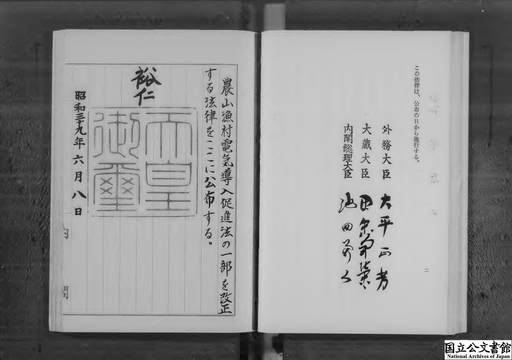 この法律は、公布の日から施行する。
外務大臣 大平正芳
大蔵大臣 田中角榮
内閣総理大臣 池田勇人
二
農山漁村電気導入促進法の一部を改正
する法律をここに公布する。
裕仁
天皇
御璽
昭和三十九年六月八日
内閣
国立公文書館
National Archives of Japan